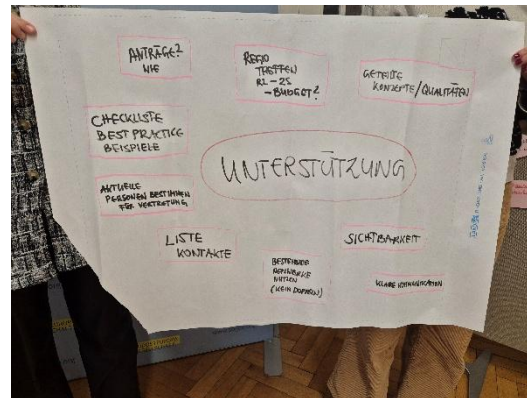 ANTRÄGE?
WIE
REGIO
TREFFEN
RL-2S
- BUDGET?
GETEILTE
KONZEPTE/QUALITÄTEN
CHECKLISTE
BEST PRACTICE
BEISPIELE
UNTERSTÜTZUNG
AKTUELLE
PERSONEN BESTIMMEN
FÜR VERTRETUNG
LISTE
KONTAKTE
SICHTBARKEIT
BESTEHENDE
NETZWERKE
NUTZEN
(KEIN DOPPELN)
KLARE KOMMUNIKATION